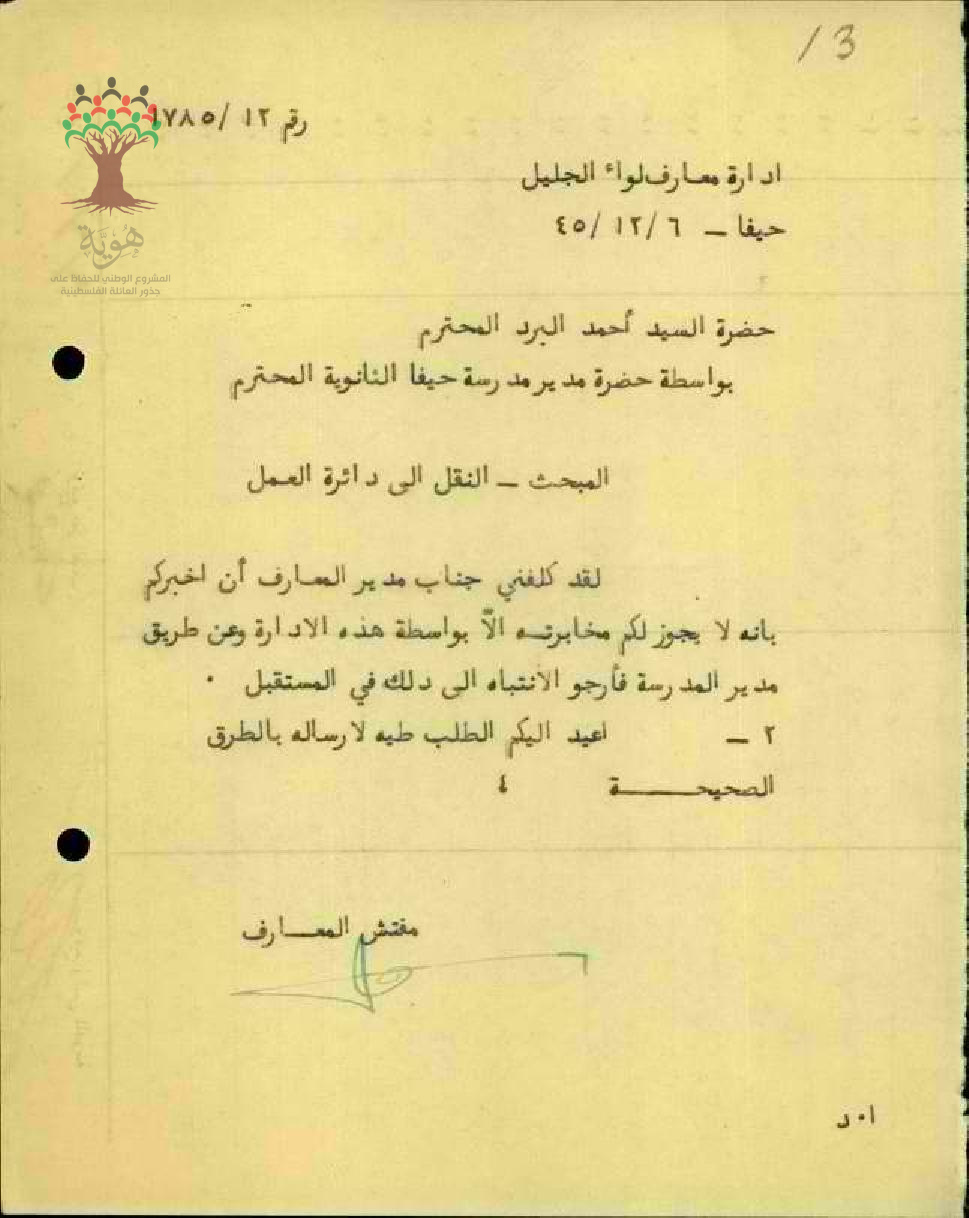 13
رقم ١٢/ ١٧٨٥
ادارة معارف لواء الجليل
حيفا – ٦/ ١٢/ ٤٥
هُوِيَّة
المشروع الوطني للحفاظ على
جذور العائلة الفلسطينية
حضرة السيد أحمد البرد المحترم
بواسطة حضرة مدير مدرسة حيفا الثانوية المحترم
المبحث – النقل الى دائرة العمل
لقد كلفني جناب مدير المعارف أن اخبركم
بانه لا يجوز لكم مخابرتـه الاّ بواسطة هذه الادارة وعن طريق
مدير المدرسة فأرجو الانتباه الى دلك في المستقبل ٠
٢ – اعيد اليكم الطلب طيه لارساله بالطرق
الصحيحـــــة
مفتش المعــارف
ا٠د